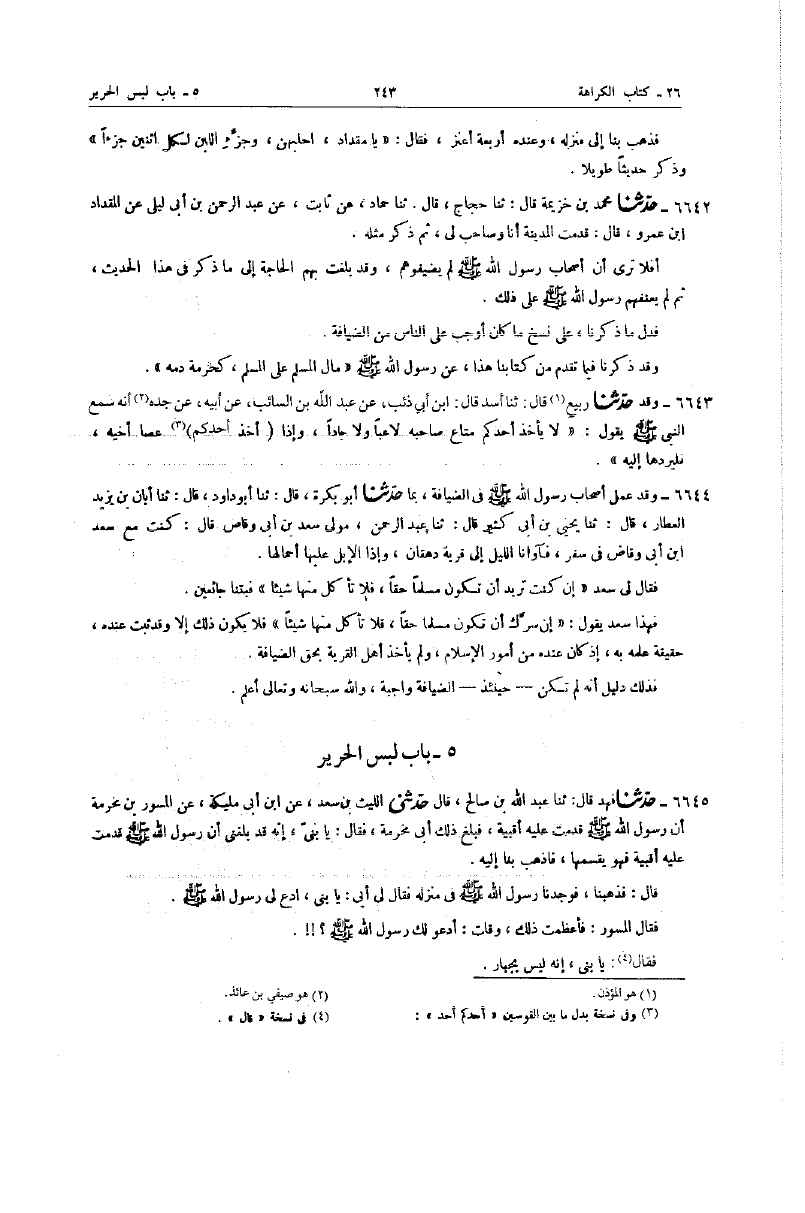 ٢٦ ـ كتاب الكراهة ٢٤٣ ٥ ـ باب لبس الحرير
فذهب بنا إلى منزله ، وعنده أربعة أعنز ، فقال : « يا مقداد ، احلبهن ، وجزِّء اللبن لكل اثنين جزءاً »
وذكر حديثاً طويلا .
٦٦٤٢ ـ حدّثنا محمد بن خزيمة قال : ثنا حجاج ، قال . ثنا حماد ، عن ثابت ، عن عبد الرحمن بن أبى ليلى عن المقداد
ابن عمرو ، قال : قدمت المدينة أنا وصاحب لى ، ثم ذكر مثله .
أفلا ترى أن أصحاب رسول الله ﷺ لم يضيفوهم ، وقد بلغت بهم الحاجة إلى ما ذكر فى هذا الحديث ،
ثم لم يعنفهم رسول الله ﷺ على ذلك .
فدل ما ذكرنا ، على نسخ ما كان أوجب على الناس من الضيافة .
وقد ذكرنا فيما تقدم من كتابنا هذا ، عن رسول الله ﷺ « مال المسلم على المسلم ، كحرمة دمه » .
٦٦٤٣ ـ وقد حدّثنا ربيع(١) قال : ثنا أسد قال : ابن أبي ذئب، عن عبد الله بن السائب، عن أبيه، عن جده(٢) أنه سمع
النبي ﷺ يقول : « لا يأخذ أحدكم متاع صاحبه لاعباً ولا جاداً ، وإذا ( أخذ أحدكم)(٣) عصا أخيه ،
فليردها إليه » .
٦٦٤٤ ـ وقد عمل أصحاب رسول الله ﷺ فى الضيافة ، بما حدّثنا أبو بكرة ، قال : ثنا أبوداود ، قال : ثنا أبان بن يزيد
العطار ، قال : ثنا يحيى بن أبى كثير قال : ثنا عبد الرحمن ، مولى سعد بن أبى وقاص قال : كنت مع سعد
ابن أبى وقاص فى سفر ، فآوانا الليل إلى قرية دهقان ، وإذا الإبل عليها أحمالها .
فقال لى سعد « إن كنت تريد أن تكون مسلماً حقاً ، فلا تأكل منها شيئا » فبتنا جائعين .
فهذا سعد يقول : « إن سرّك أن تكون مسلما حقاً ، فلا تأكل منها شيئاً » فلا يكون ذلك إلا وقد ثبت عنده ،
حقيقة علمه به ، إذ كان عنده من أمور الإسلام ، ولم يأخذ أهل القرية بحق الضيافة .
فذلك دليل أنه لم تكن — حينئذ — الضيافة واجبة ، والله سبحانه وتعالى أعلم .
٥ ـ باب لبس الحرير
٦٦٤٥ ـ حدّثنا فهد قال: ثنا عبد الله بن صالح ، قال حدّثنى الليث بن سعد ، عن ابن أبى مليكة ، عن المسور بن مخرمة
أن رسول الله ﷺ قدمت عليه أقبية ، فبلغ ذلك أبى مخرمة ، فقال : يا بنىّ ، إنه قد بلغنى أن رسول الله ﷺ قدمت
عليه أقبية فهو يقسمها ، فاذهب بنا إليه .
قال : فذهبنا ، فوجدنا رسول الله ﷺ فى منزله فقال لى أبى : يا بنى ، ادع لى رسول الله ﷺ .
فقال المسور : فأعظمت ذلك ، وقلت : أدعو لك رسول الله ﷺ ؟ !! .
فقال(٤) : يا بنى ، إنه ليس بجبار .
(١) هو المؤذن. (٢) هو صيفي بن عائذ.
(٣) وفى نسخة بدل ما بين القوسين « أحدكم أحد » : (٤) فى نسخة « قال » .